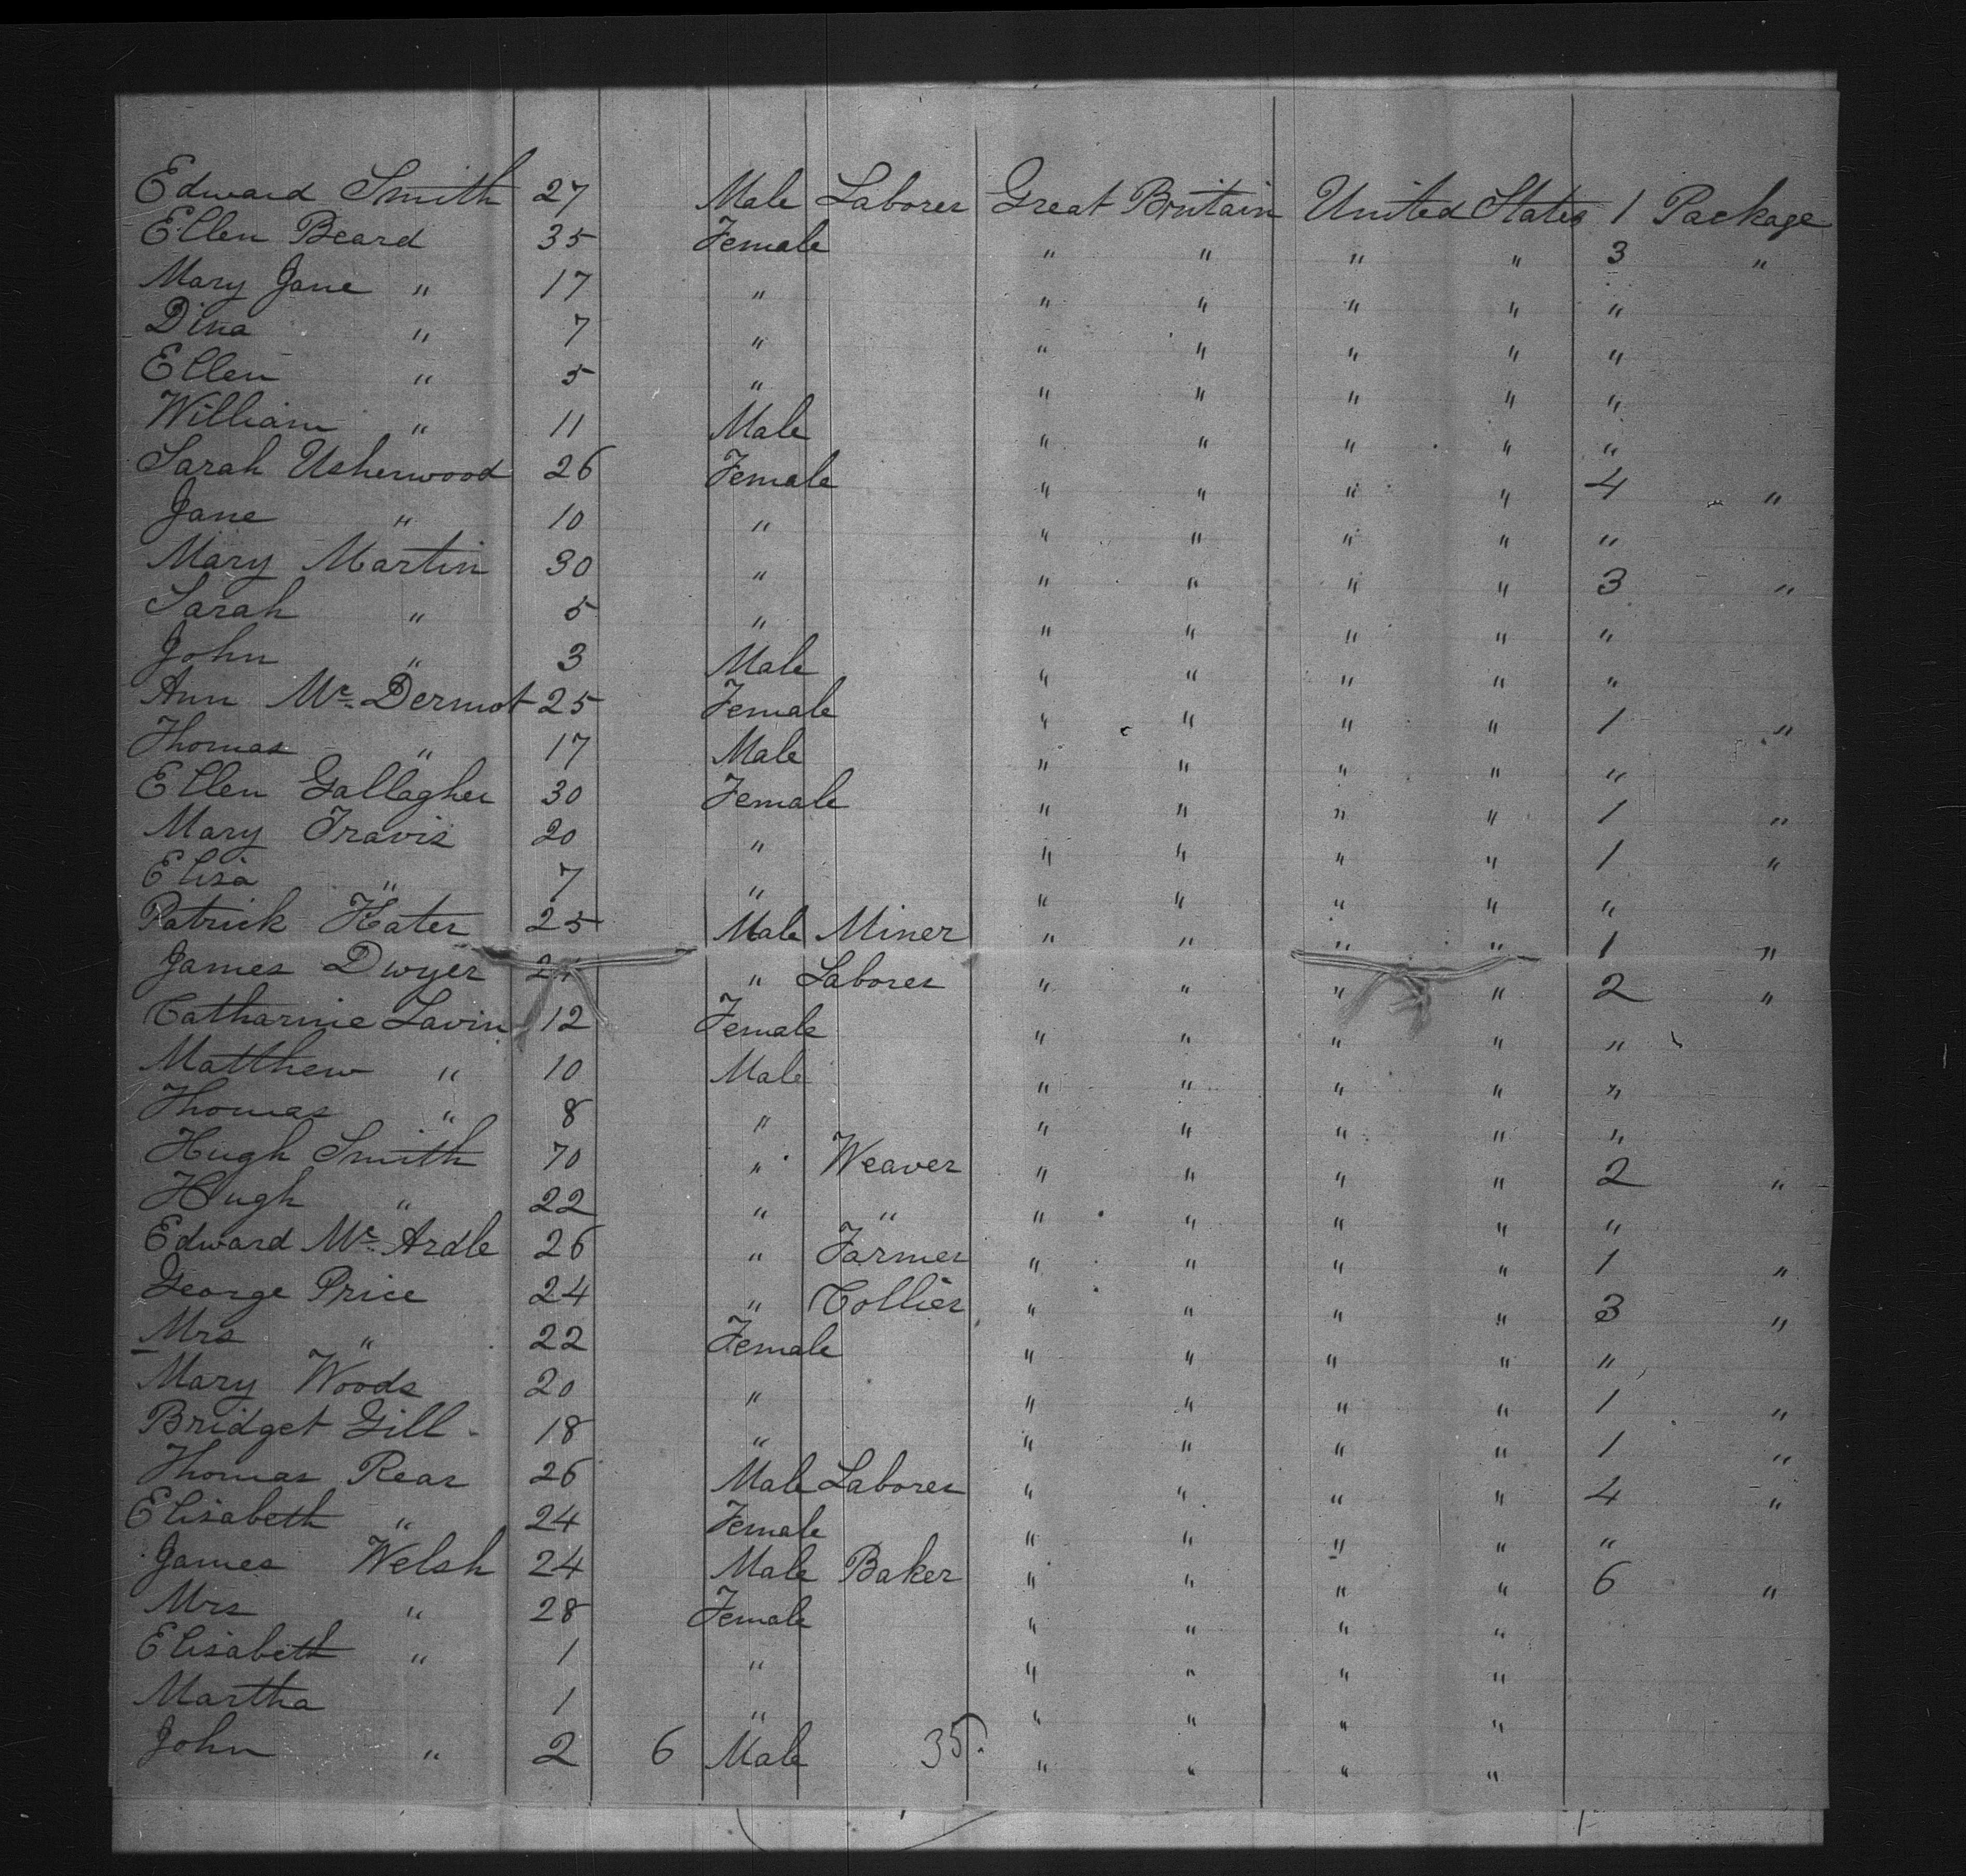 Edward Smith 27 Male Laborer Great Britain United States 1 Package
Ellen Beard 35 Female " " " " 3 "
Mary Jane " 17 " " " " " "
Dina " 7 " " " " " "
Ellen " 5 " " " " " "
William " 11 Male " " " " "
Sarah Usherwood 26 Female " " " " 4 "
Jane " 10 " " " " " "
Mary Martin 30 " " " " " 3 "
Sarah " 5 " " " " " "
John " 3 Male " " " " "
Ann Mc. Dermot 25 Female " " " " 1 "
Thomas " 17 Male " " " " "
Ellen Gallagher 30 Female " " " " 1 "
Mary Travis 20 " " " " " 1 "
Elisa " 7 " " " " " "
Patrick Hater 25 Male Miner " " " " 1 "
James Dwyer " Laborer " " " " 2 "
Catharine Lavin 12 Female " " " " "
Matthew " 10 Male " " " " "
Thomas " 8 " " " " " "
Hugh Smith 70 " Weaver " " " " 2 "
Hugh " 22 " " " " " " "
Edward Mc. Ardle 26 " Farmer " " " " 1 "
George Price 24 " Collier " " " " 3 "
Mrs " 22 Female " " " " "
Mary Woods 20 " " " " " 1 "
Bridget Gill 18 " " " " " 1 "
Thomas Rear 26 Male Laborer " " " " 4 "
Elisabeth " 24 Female " " " " "
James Welsh 24 Male Baker " " " " 6 "
Mrs " 28 Female " " " "
Elisabeth " 1 " " " " "
Martha 1 " " " " "
John " 2 6 Male 35. " " " "